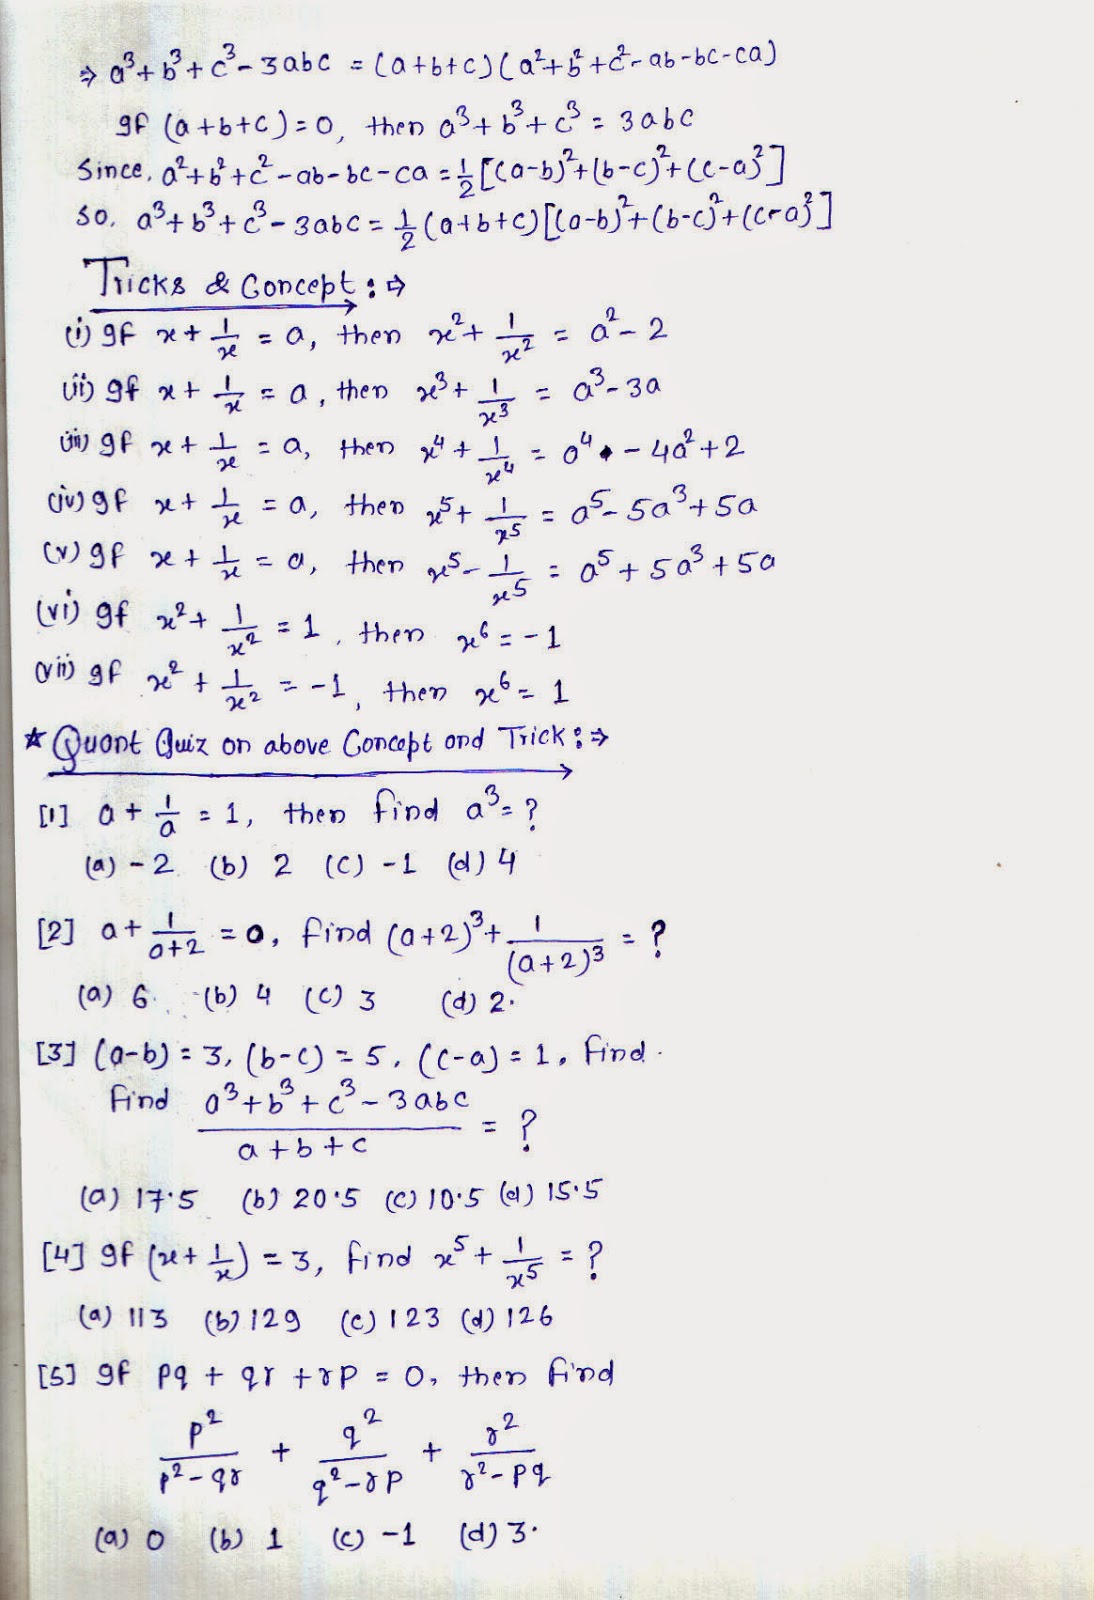 ⇒ a³+b³+c³-3abc = (a+b+c)(a²+b²+c²-ab-bc-ca)
If (a+b+c)=0, then a³+b³+c³=3abc
Since, a²+b²+c²-ab-bc-ca = 1/2 [(a-b)²+(b-c)²+(c-a)²]
So, a³+b³+c³-3abc = 1/2 (a+b+c)[(a-b)²+(b-c)²+(c-a)²]
Tricks & Concept :⇒
(i) If x + 1/x = a, then x² + 1/x² = a²-2
(ii) If x + 1/x = a, then x³ + 1/x³ = a³-3a
(iii) If x + 1/x = a, then x⁴ + 1/x⁴ = a⁴ - 4a²+2
(iv) If x + 1/x = a, then x⁵ + 1/x⁵ = a⁵-5a³+5a
(v) If x + 1/x = a, then x⁵ - 1/x⁵ = a⁵+5a³+5a
(vi) If x² + 1/x² = 1, then x⁶ = -1
(vii) If x² + 1/x² = -1, then x⁶ = 1
★ Quant Quiz on above Concept and Trick :⇒
[1] a + 1/a = 1, then find a³=?
(a) -2 (b) 2 (c) -1 (d) 4
[2] a + 1/(a+2) = 0, find (a+2)³ + 1/(a+2)³ = ?
(a) 6. (b) 4 (c) 3 (d) 2.
[3] (a-b) = 3, (b-c) = 5, (c-a) = 1, find.
find (a³+b³+c³-3abc)/(a+b+c) = ?
(a) 17.5 (b) 20.5 (c) 10.5 (d) 15.5
[4] If (x + 1/x) = 3, find x⁵ + 1/x⁵ = ?
(a) 113 (b) 129 (c) 123 (d) 126
[5] If pq + qr + rp = 0, then find
p²/(p²-qr) + q²/(q²-rp) + r²/(r²-pq)
(a) 0 (b) 1 (c) -1 (d) 3.